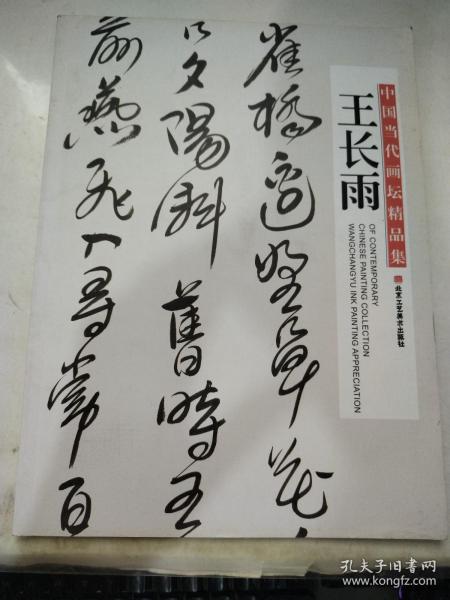 中国当代画坛精品集
王长雨
OF CONTEMPORARY
CHINESE PAINTING COLLECTION
WANGCHANGYU INK PAINTING APPRECIATION
北京工艺美术出版社
雀橋邊野草花
口夕陽斜舊時王
前燕飛入尋常百
孔夫子旧书网
www.kongfz.com